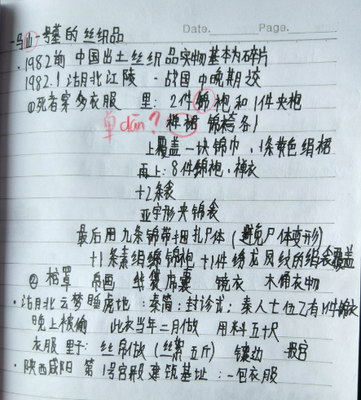 Date. Page.
一马山一号墓的丝织品
·1982前 中国出土丝织品实物基本为碎片
1982.1 湖北江陵 - 战国中晚期
①死者穿多衣服 里：2件锦袍和1件夹袍
单 dān？ 禅裙 锦袴各1
上覆盖一块锦巾，1条黄色绢裙
再上：8件锦袍、禅衣
+2条衾
亚字形夹锦衾
最后用九条锦带捆扎尸体（避免尸体变形）
+1条素绢 锦袍+1件绣龙凤纹的 覆盖
② 棺罩 帛画 席囊 镜衣 木俑衣物
·湖北云梦睡虎地：秦简：封诊式：秦人士伍乙有1件锦衣
晚上被偷 此衣当年二月做 用料五十尺
衣服里子：丝帛做（丝絮五斤） 镶边
·陕西咸阳 第1号宫殿建筑基址：一包衣服